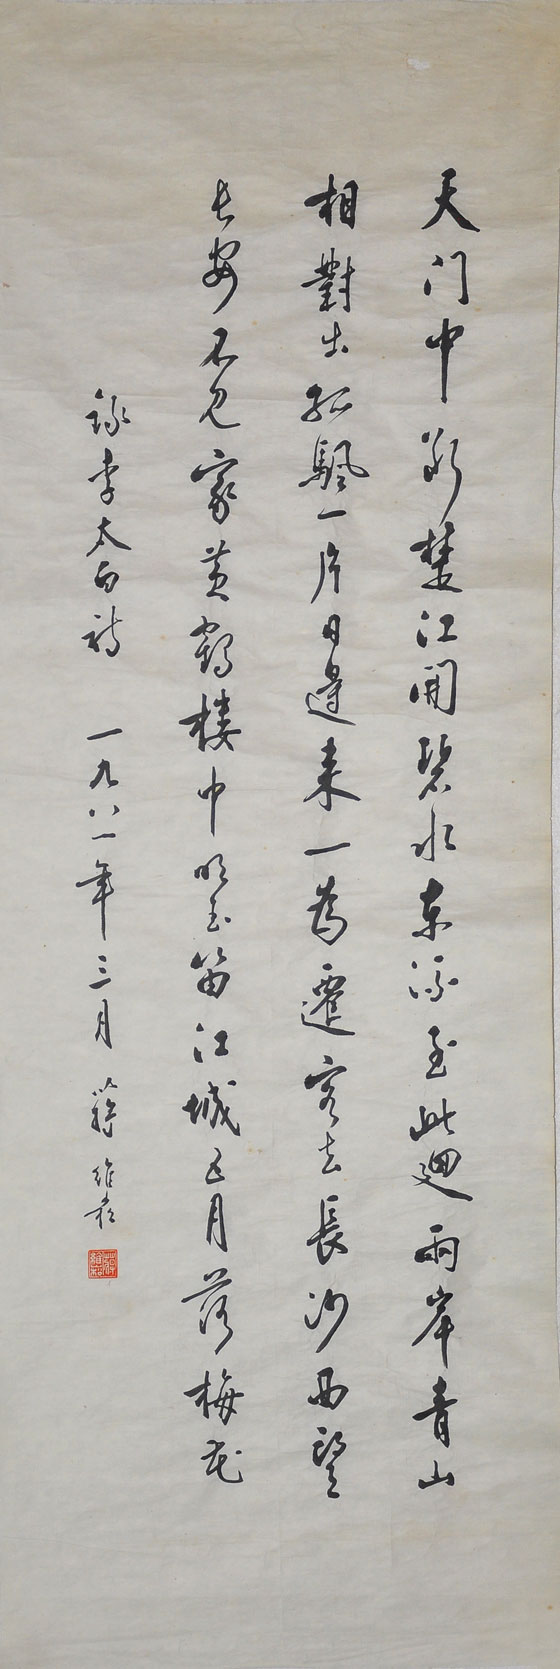 天门中断楚江開碧水東流至此迴兩岸青山
相對出孤颿一片日邊来一為遷客去長沙西望
長安不見家黄鶴楼中吹玉笛江城五月落梅花
録李太白詩 一九八一年三月 蔣維崧